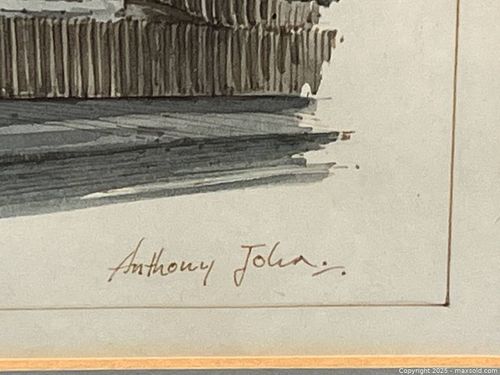 Anthony John.
Copyright 2025 - maxsold.com